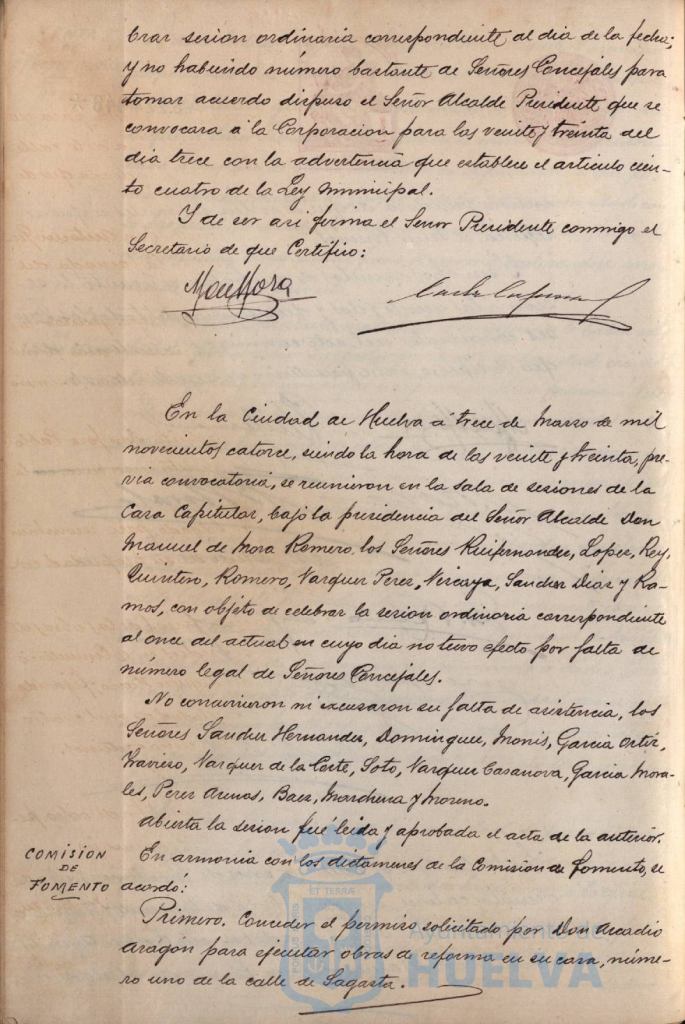 brar sesion ordinaria correspondiente al dia de la fecha;
y no habiendo número bastante de Señores Concejales para
tomar acuerdo dispuso el Señor Alcalde Presidente que se
convocara á la Corporacion para las veinte y treinta del
dia trece con la advertencia que establece el articulo cien-
to cuatro de la Ley Municipal.
Y de ser asi firma el Señor Presidente conmigo el
Secretario de que Certifico:
En la Ciudad de Huelva á trece de Marzo de mil
novecientos catorce, siendo la hora de las veinte y treinta, pre-
via convocatoria, se reunieron en la sala de sesiones de la
Casa Capitular, bajo la presidencia del Señor Alcalde Don
Manuel de Mora Romero, los Señores Ruifernandez, Lopez, Rey,
Quintero, Romero, Vazquez Perez, Vizcaya, Sanchez Diaz y Ra-
mos, con objeto de celebrar la sesion ordinaria correspondiente
al once del actual en cuyo dia no tuvo efecto por falta de
número legal de Señores Concejales.
No concurrieron ni excusaron su falta de asistencia, los
Señores Sanchez Hernandez, Dominguez, Monis, Garcia Ortiz,
Travieso, Vazquez de la Corte, Soto, Vazquez Casanova, Garcia Mora-
les, Perez Arenas, Baez, Marchena y Moreno.
Abierta la sesion fué leida y aprobada el acta de la anterior.
COMISION
DE
FOMENTO
En armonia con los dictamenes de la Comision de Fomento, se
acordó:
Primero. Conceder el permiso solicitado por Don Arcadio
Aragón para ejecutar obras de reforma en su casa, núme-
ro uno de la calle de Sagasta.
Ayuntamiento de
HUELVA